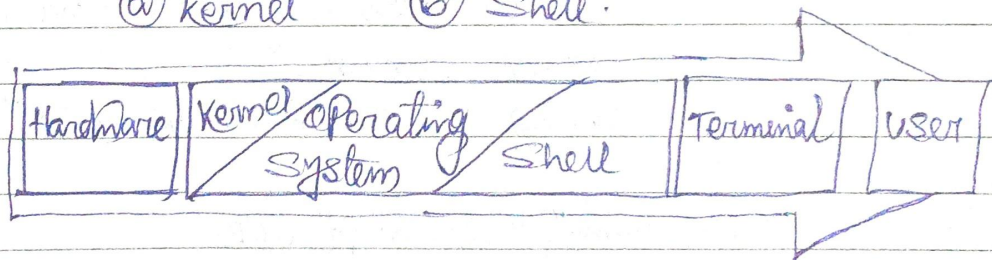 ⓐ Kernel ⓑ Shell.
Hardware Kernel Operating System Shell Terminal User